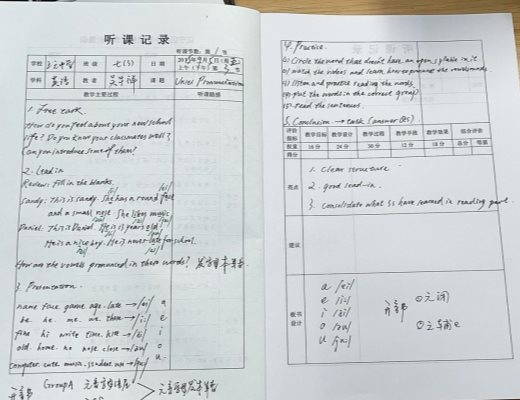 听课记录
听课节数:第 1 节
学校
班级 七(3)
学科 英语 教者
课题 Unit 1 Pronunciation
教学主要过程
听课随感
1. Free talk
How do you feel about your new school
life? Do you know your classmates well?
Can you introduce some of them?
2. Lead in
Review: Fill in the blanks.
Sandy: This is Sandy. She has a round face
and a small nose. She likes music.
Daniel: This is Daniel. He is 12 years old!
He is a nice boy. He is never late for school.
How are the vowels pronounced in these words?
3. Presentation.
name face game age late → /ei/ a
be he me we these → /i:/ e
fine hi write time hi → /ai/ i
old home no nose close → /əu/ o
computer cute music student use → /ju:/ u
Group A
4. Practice.
(1) Circle the word that doesn't have an open syllable in it
(2) Match the values and learn how to pronounce the vowels
(3) Listen and practise reading the words.
(4) Put the words in the correct group!
(5) Read the sentences.
5. Conclusion → task (answer Qs)
评价指标 教学目标 教学设计 教学过程 教学手段 教学效果 综合评价
权重 16分 24分 30分 12分 18分 总分 等第
得分
亮点
1. Clear structure.
2. good lead-in.
3. consolidate what Ss have learned in reading part.
建议
板书设计
a /ei/
e /i:/
i /ai/
o /əu/
u /ju:/
开音节
①元
②元辅e